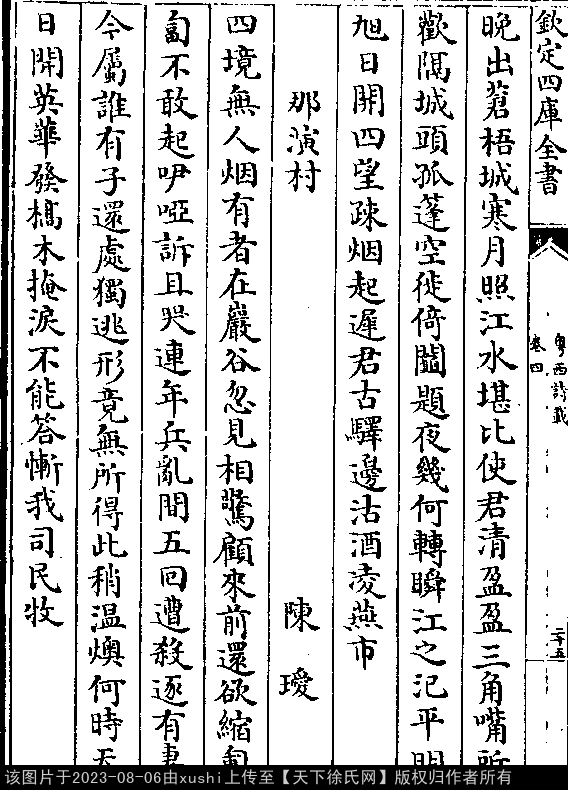 欽定四庫全書
粵西詩載
卷四
二十五
晚出蒼梧城寒月照江水堪比使君清盈盈三角嘴
歡隔城頭孤蓬空徙倚鬮題夜幾何轉瞬江之汜平明
旭日開四望疎烟起遲君古驛邊沽酒凌燕市
那演村 陳璦
四境無人烟有者在巖谷忽見相驚顧來前還欲縮匍
匐不敢起吚啞訴且哭連年兵亂間五回遭殺逐有妻
今屬誰有子還處獨逃形竟無所得此稍温燠何時天
日開英華發槁木掩淚不能答慚我司民牧
该图片于2023-08-06由xushi上传至【天下徐氏网】版权归作者所有